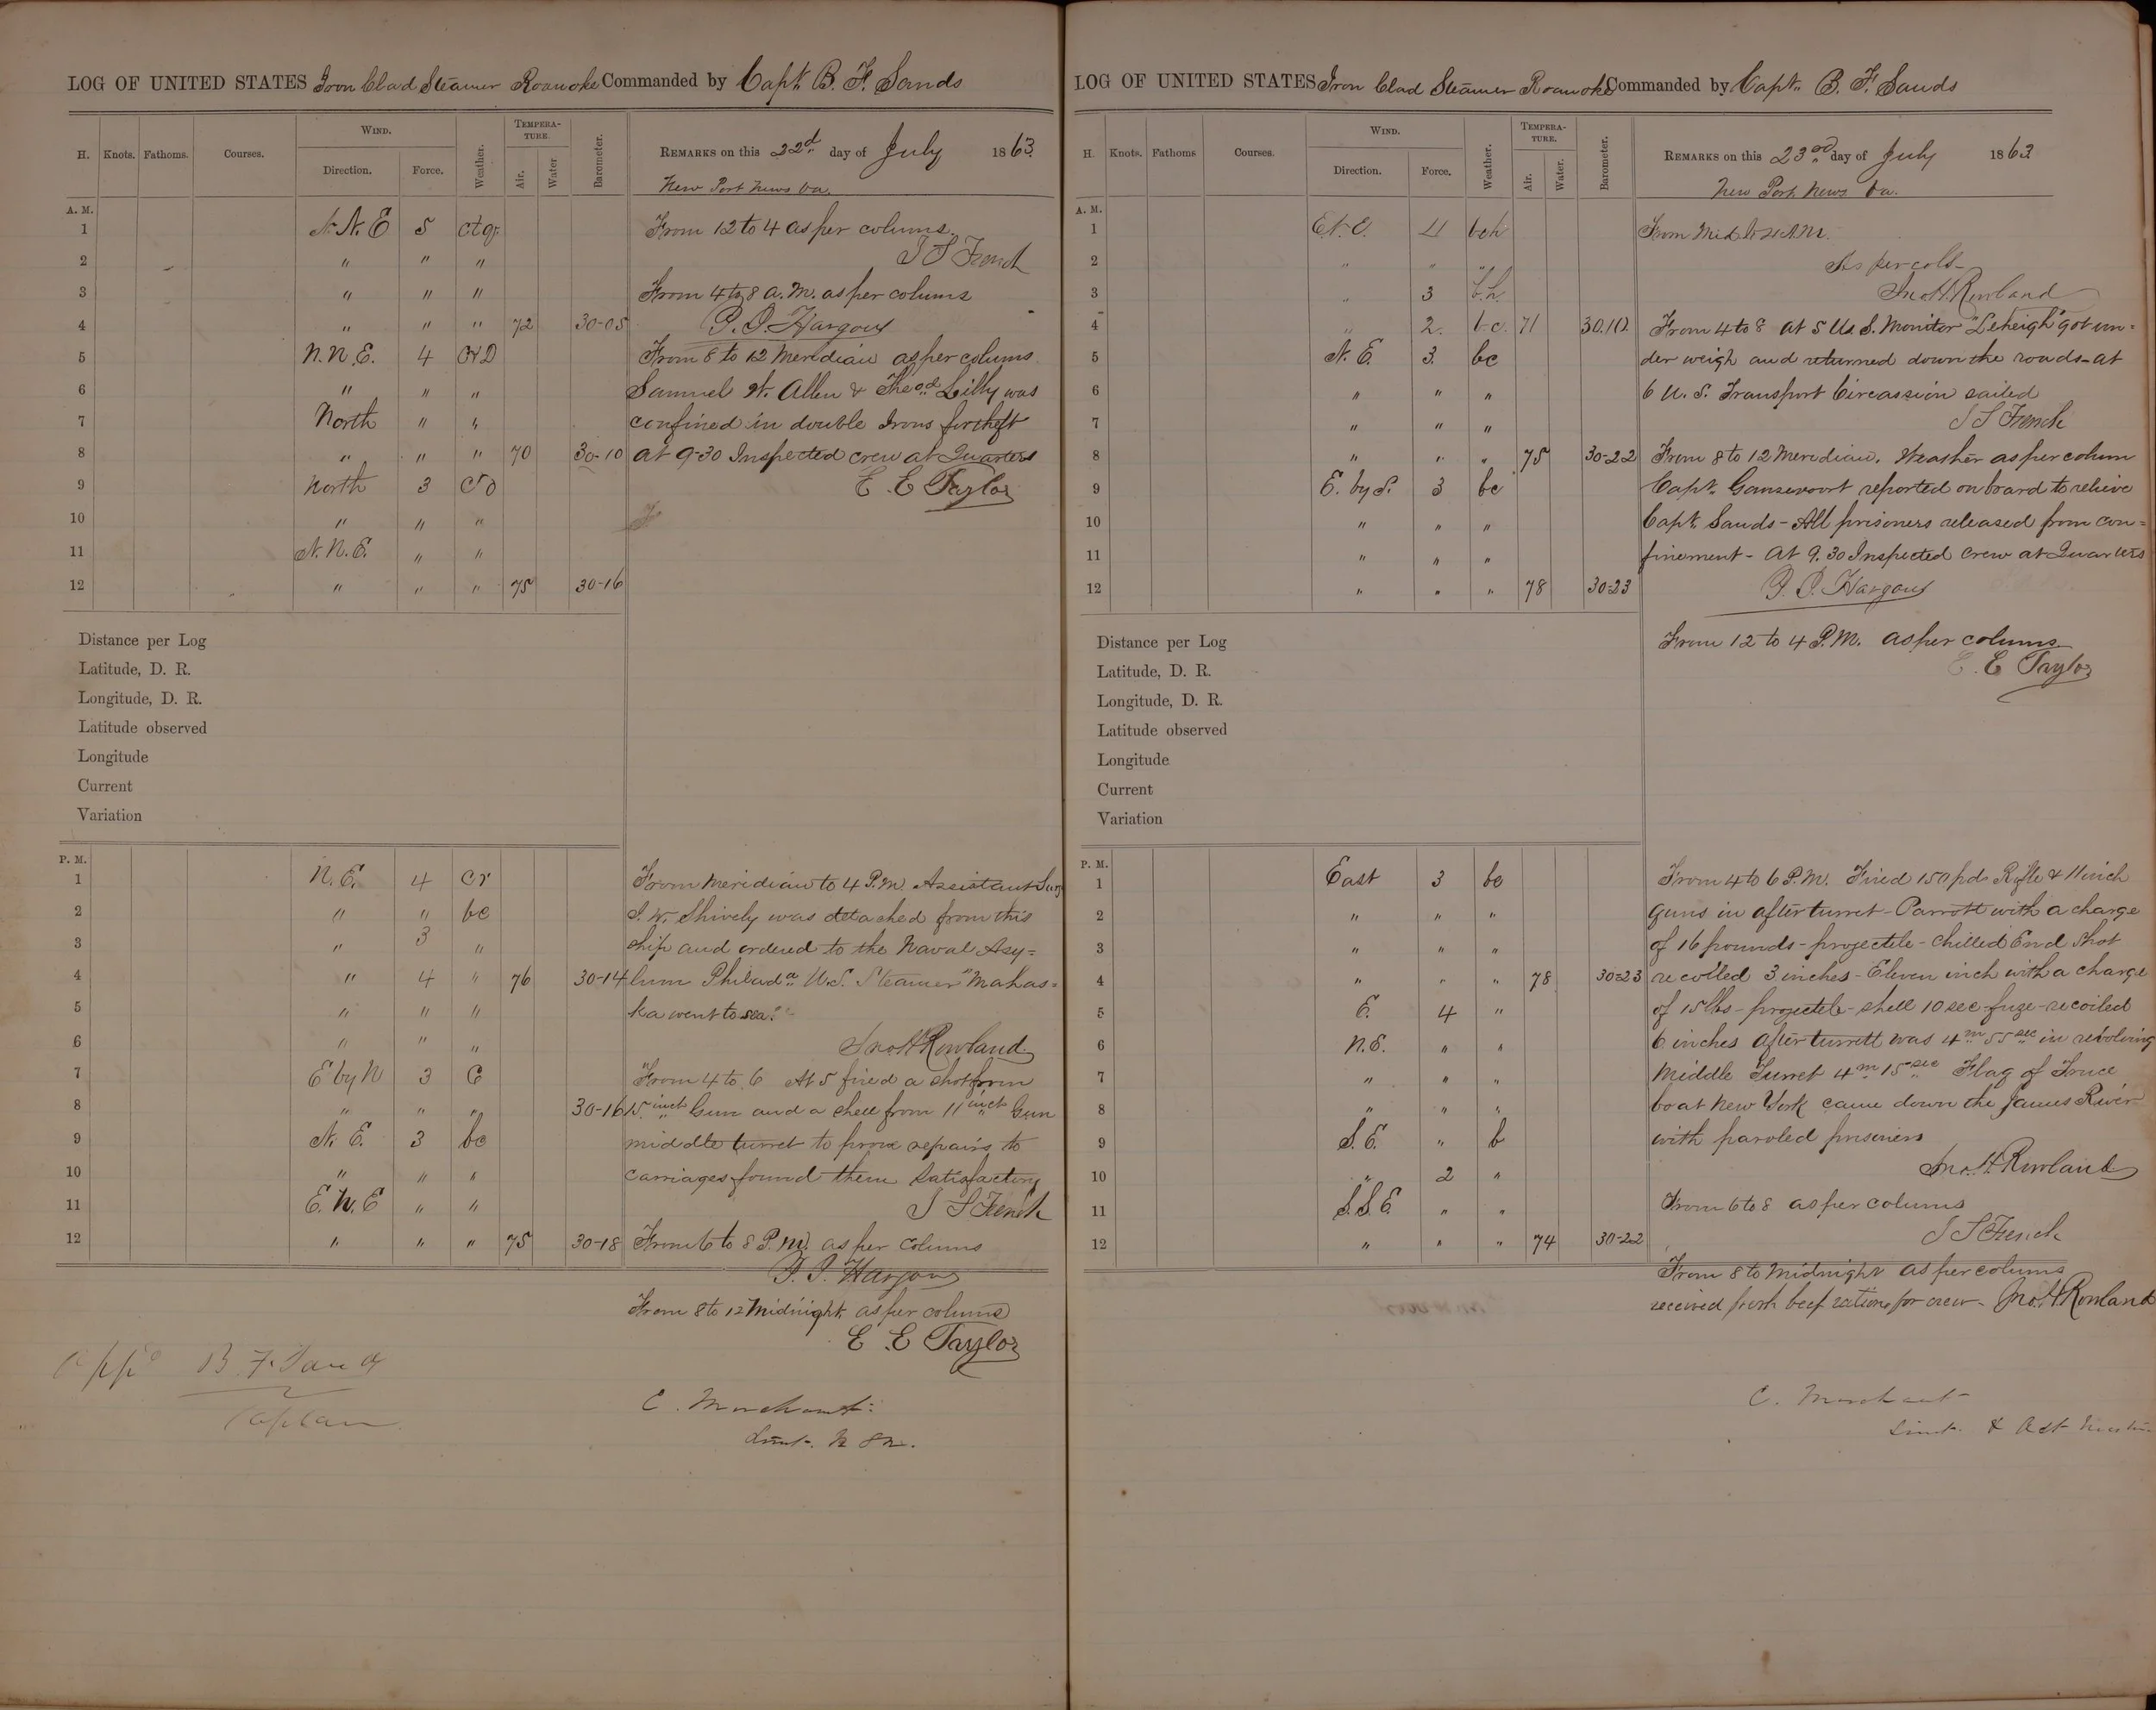 LOG OF UNITED STATES Iron Clad Steamer Roanoke Commanded by Capt. B. F. Sands
H. Knots. Fathoms. Courses. WIND. Direction. Force. Weather. TEMPERATURE. Air. Water Barometer. REMARKS on this 22d day of July 1863.
New Port News Va.
A. M.
1 N.N.E 5
2 " " "
3 " " "
4 " " " 72 30-05
5 N.N.E. 4
6 " " "
7 North " "
8 " " " 70 30-10
9 North 3
10 " " "
11 N.N.E. " "
12 " " " 75 30-16
From 12 to 4 as per columns.
J S French
From 4 to 8 a.m. as per colums
P. J. Hargous
From 8 to 12 Meridian as per colums
Samuel W. Allen & Theod Lilly was
confined in double Irons for theft
at 9-30 Inspected crew at Quarters
E. E Taylor
Distance per Log
Latitude, D. R.
Longitude, D. R.
Latitude observed
Longitude
Current
Variation
P. M.
1 N.E. 4 cr
2 " " bc
3 " 3 "
4 " 4 " 76 30-14
5 " " "
6 " " "
7 E by N 3 C
8 " " " 30-16
9 N. E. 3 bc
10 " " "
11 E.N.E " "
12 " " " 75 30-18
From Meridian to 4 P.M. Assistant Surg
J. W. Shively was detached from this
ship and ordered to the Naval Asy=
lum Philada. U.S. Steamer "Mahas=
ka went to sea."
Jno. H. Rowland
From 4 to 6 At 5 fired a shot from
15 inch Gun and a shell from 11 inch Gun
middle turret to prove repairs to
carriages found them Satisfactory
J S French
From 6 to 8 P.M. as per colums
P. J. Hargous
From 8 to 12 Midnight as per colums
E. E Taylor
B F Sands
Captain
C. Merchant
Lieut.
LOG OF UNITED STATES Iron Clad Steamer Roanoke Commanded by Capt. B. F. Sands
H. Knots. Fathoms Courses. WIND. Direction. Force. Weather. TEMPERATURE. Air. Water. Barometer. REMARKS on this 23rd day of July 1863
New Port News Va.
A. M.
1 E.N.E. 4 bch
2 " " "
3 " 3 b.h.
4 " 2. b.c. 71 30.10
5 N. E. 3. bc
6 " " "
7 " " "
8 " " " 75 30-22
9 E. by S. 3 bc
10 " " "
11 " " "
12 " " " 78 30-23
From Mid to 4 A.M.
As per cols
Jno H. Rowland
From 4 to 8 at 5 U.S. Monitor "Leheigh" got un=
der weigh and returned down the roads - at
6 U. S. Transport Circassion sailed
J S French
From 8 to 12 Meridian. Weather as per colum
Capt. Gansevoort reported on board to relieve
Capt. Sands - All prisoners released from con=
finement - At 9.30 Inspected crew at Quarters
P. J. Hargous
From 12 to 4 P.M. as per colums
E. E Taylor
Distance per Log
Latitude, D. R.
Longitude, D. R.
Latitude observed
Longitude
Current
Variation
P. M.
1 East 3 bc
2 " " "
3 " " "
4 " " " 78 30-23
5 E. 4 "
6 N.E. " "
7 " " "
8 " " "
9 S.E. " b
10 " 2 "
11 S.S.E. " "
12 " " " 74 30-22
From 4 to 6 P.M. Fired 150 pd. Rifle & 11 inch
guns in after turret - Parrott with a charge
of 16 pounds - projectile - Chilled End Shot
recoiled 3 inches - Eleven inch with a charge
of 15 lbs - projectile - shell 10 sec fuze - recoiled
6 inches After turrett was 4m 55sec in revolving
Middle Turret 4m 15sec Flag of Truce
boat New York came down the James River
with paroled prisoners
Jno. H. Rowland
From 6 to 8 as per colums
J S French
From 8 to Midnight as per colums
received fresh beef rations for crew - Jno. H Rowland
C. Merchant
Lieut. &